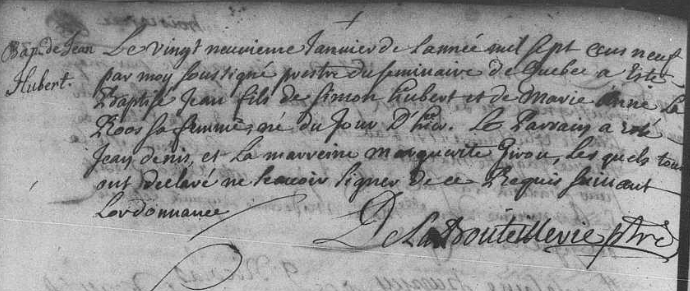 Bap. de Jean
Hubert.
Le vingt neuvieme Janvier de L'année mil sept cens neuf
par moy soussigné prestre du seminaire de Quebec a esté
Baptisé Jean fils de Simon hubert et de Marie Anne La
Roos sa femme, né du Jour D'hier. Le Parrain a esté
Jean denis, et La marreine Marguerite Girou, Les quels tous
ont declaré ne scavoir signer de ce Requis suivant
Lordonnance
De La Bouteillerie ptre